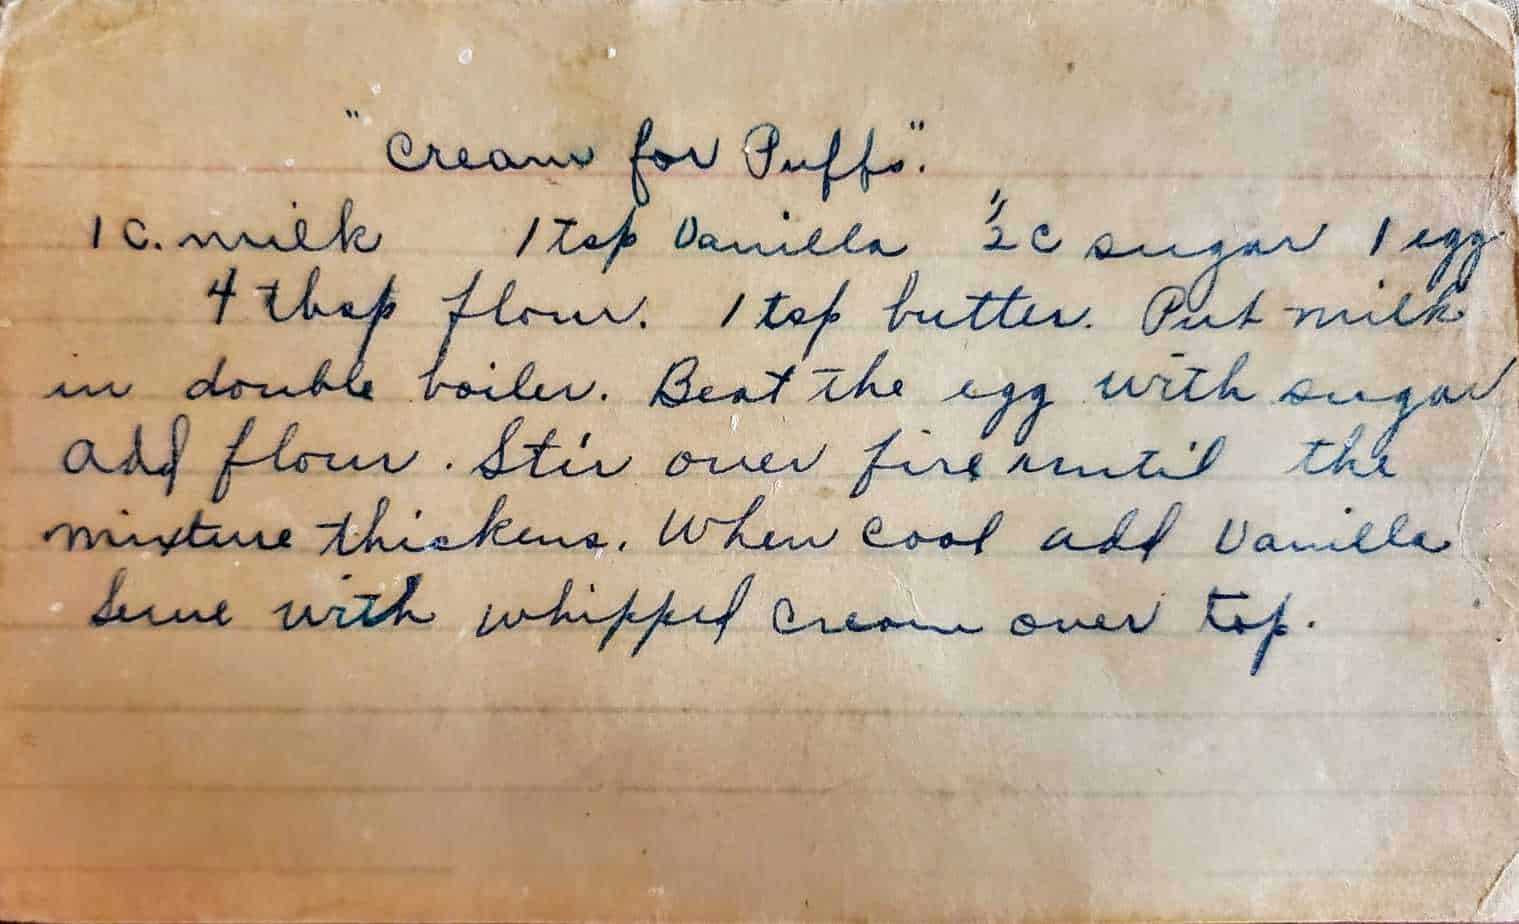 "Cream for Puffs".
1 C. milk 1 tsp Vanilla 1/2 C sugar 1 egg
4 tbsp flour. 1 tsp butter. Put milk
in double boiler. Beat the egg with sugar
add flour. Stir over fire until the
mixture thickens. When cool add Vanilla
Serve with whipped cream over top.